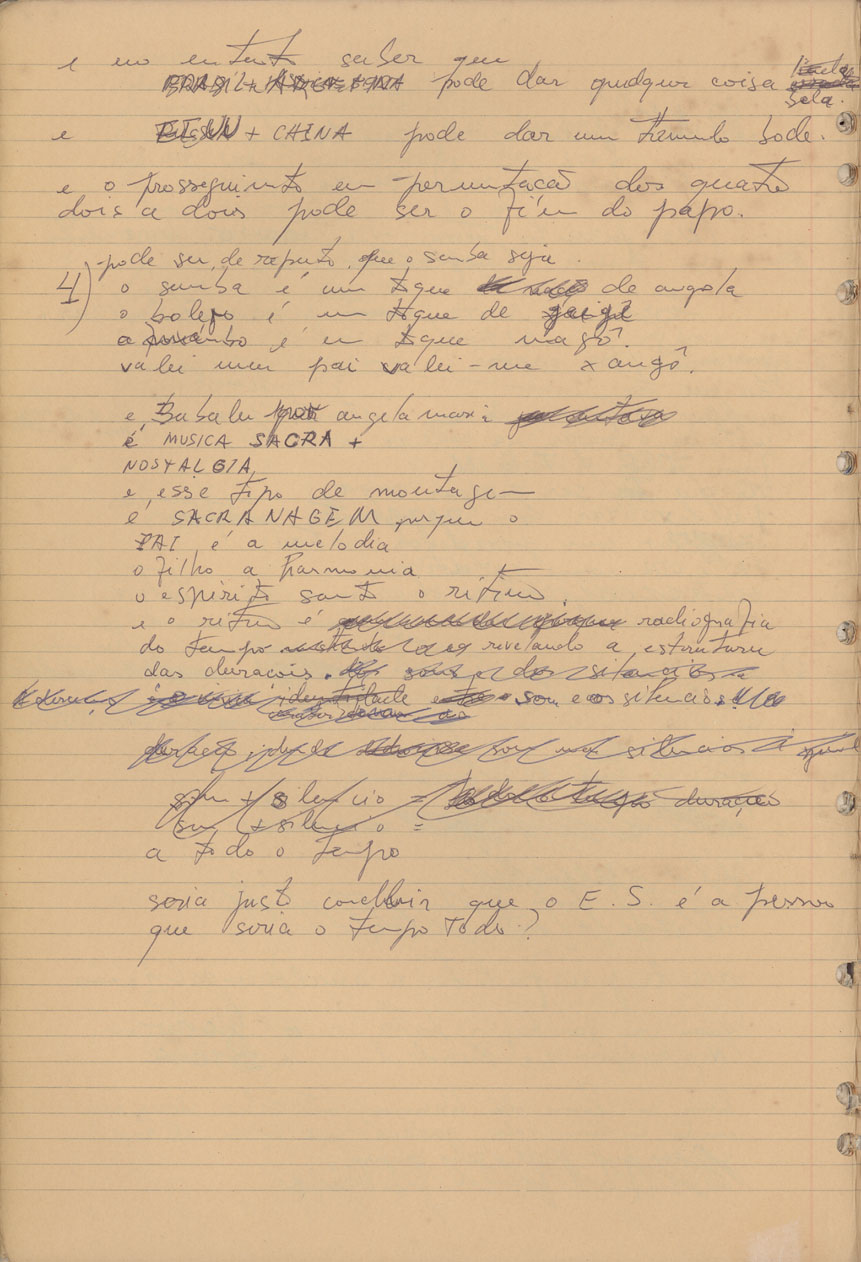 e no entanto saber que
BRASIL + ARGENTINA pode dar qualquer coisa linda
bela.
e + CHINA pode dar um tremendo bode.
e o prosseguimento em permutação dos quatro
dois a dois pode ser o fim do papo.
pode ser, de repente, que o samba seja
4) o samba é um toque de angola
o bolero é um toque de
a é um toque nagô.
valei meu pai valei-me xangô.
e, Babalu angela maria
é MUSICA SACRA +
NOSTALGIA,
e, esse tipo de montagem
é SACRANAGEM, porque o
PAI é a melodia
o filho a harmonia
o espirito santo o ritimo,
e o ritmo é radiografia
do tempo revelando a estrutura
das durações. sons e dos silencios
identidade som e os silencios
duração, som nos silencios é igual
som + silencio = duração
som + silencio =
a todo o tempo
seria justo concluir que o E. S. é a pessoa
que seria o tempo todo?